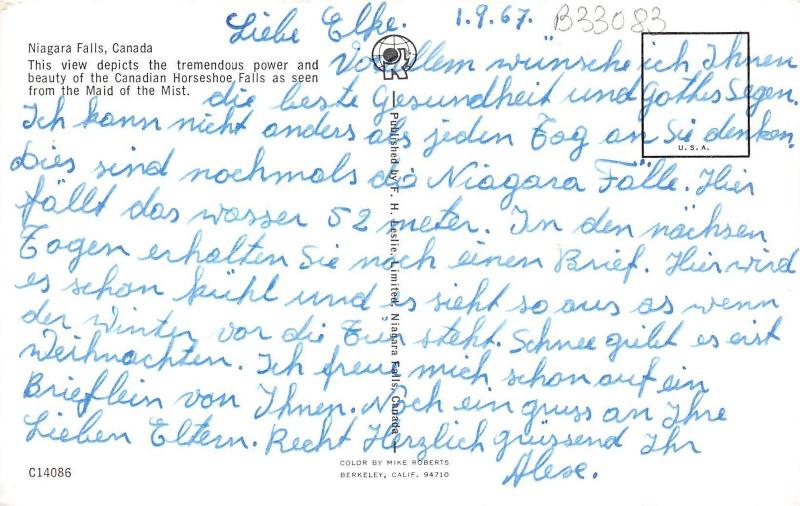 Liebe Elke. 1.9.67. B33083
Niagara Falls, Canada
This view depicts the tremendous power and
beauty of the Canadian Horseshoe Falls as seen
from the Maid of the Mist.
Vor allem wünsche ich Ihnen
die beste Gesundheit und Gottes Segen.
Ich kann nicht anders als jeden Tag an Sie denken.
Dies sind nochmals die Niagara Fälle. Hier
fällt das wasser 52 meter. In den nächsen
Tagen erhalten Sie noch einen Brief. Hier wird
es schon kühl und es sieht so aus as wenn
der Winter vor die Tür steht. Schnee giebt es erst
Weihnachten. Ich freue mich schon auf ein
Brieflein von Ihnen. Noch ein gruss an Ihre
Lieben Eltern. Recht Herzlich grüssend Ihr
Published by F. H. Leslie, Limited, Niagara Falls, Canada
U.S.A.
C14086
COLOR BY MIKE ROBERTS
BERKELEY, CALIF. 94710